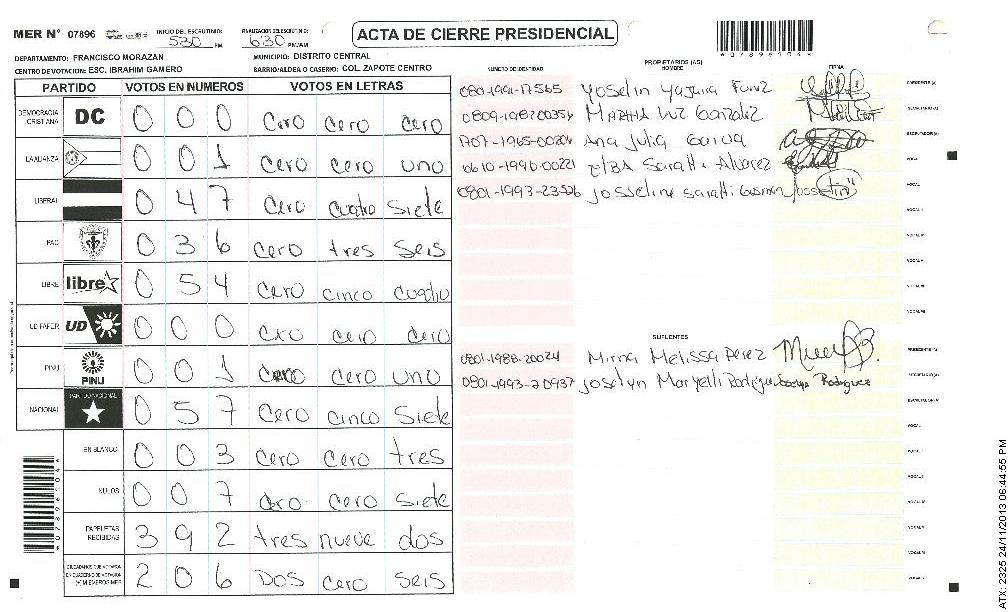 MER N° 07896 INICIO DEL ESCRUTINIO: 530 PM FINALIZACION DEL ESCRUTINIO: 630 PM/AM ACTA DE CIERRE PRESIDENCIAL
DEPARTAMENTO: FRANCISCO MORAZAN MUNICIPIO: DISTRITO CENTRAL
CENTRO DE VOTACION: ESC. IBRAHIM GAMERO BARRIO/ALDEA O CASERIO: COL. ZAPOTE CENTRO
PARTIDO VOTOS EN NUMEROS VOTOS EN LETRAS
DEMOCRACIA CRISTIANA DC 0 0 0 Cero Cero Cero
LA ALIANZA 0 0 1 Cero Cero uno
LIBERAL 0 4 7 Cero Cuatro Siete
PAC 0 3 6 Cero tres Seis
LIBRE libre 0 5 4 Cero cinco cuatro
UD FAPER UD 0 0 0 Cero cero cero
PINU PINU 0 0 1 Cero cero uno
NACIONAL PARTIDO NACIONAL 0 5 7 Cero cinco Siete
EN BLANCO 0 0 3 Cero Cero tres
NULOS 0 0 7 Cero cero Siete
PAPELETAS RECIBIDAS 3 9 2 tres nueve dos
CIUDADANOS QUE VOTARON EN CUADERNO DE VOTACION (+) MIEMBROS MER 2 0 6 Dos cero seis
NUMERO DE IDENTIDAD PROPIETARIOS (AS) NOMBRE FIRMA
0801-1991-17565 Yoselin Yajaira Funez PRESIDENTE (A)
0809-1982-00354 Martha Luz Gonzalez SECRETARIO (A)
1707-1965-00204 Ana Julia Garcia ESCRUTADOR (A)
0610-1990-00221 Elba Saratti Alvarez VOCAL
0801-1993-23526 Josseline Saratti Guzman VOCAL
SUPLENTES
0801-1988-20024 Mirna Melissa Perez PRESIDENTE (A)
0801-1993-20937 Joselyn Maryelli Rodriguez Joselyn Rodriguez SECRETARIO (A)
ESCRUTADOR (A)
ATX: 2325 24/11/2013 06:44:55 PM